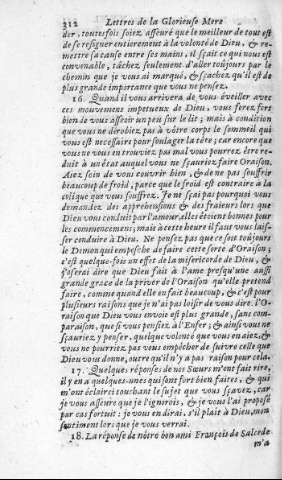 312 Lettres de la Glorieuse Mere
der, toutesfois soiez asseuré que le meilleur de tout est
de se resigner entierement à la volonté de Dieu, & re-
mettre sa cause entre ses mains, il sçait ce qui nous est
convenable, tâchez seulement d'aller toûjours par le
chemin que je vous ai marqué, & sçachez qu'il est de
plus grande importance que vous ne pensez.
16. Quand il vous arrivera de vous éveiller avec
ces mouvemens impetueux de Dieu, vous ferez fort
bien de vous asseoir un peu sur le lit; mais à condition
que vous ne dérobiez pas à vôtre corps le sommeil qui
vous est necessaire pour soulager la tête; car encore que
vous ne vous en trouviez pas mal vous pourrez être re-
duit à un état auquel vous ne sçauriez faire Oraison.
Aiez soin de vous couvrir bien, & de ne pas souffrir
beaucoup de froid, parce que le froid est contraire à la
colique que vous souffrez. Je ne sçai pas pourquoi vous
demandez les apprehensions & des fraiers lors que
Dieu vous conduit par l'amour. elles étoient bonnes pour
les commencemens; mais à cette heure il faut vous lais-
ser conduire à Dieu. Ne pensez pas que ce soit toûjours
le Demon qui empesche de faire cette sorte d'Oraison;
c'est quelque-fois un effet de la misericorde de Dieu, &
j'oserai dire que Dieu fait à l'ame prosqu'une aussi
grande grace de la priver de l'Oraison qu'elle pretend
faire, comme quand elle en fait beaucoup, & c'est pour
plusieurs raisons que je n'ai pas loisir de vous dire. l'O-
raison que Dieu vous envoie est plus grande, sans com-
paraison, que si vous pensiez à l'Enfer; & ainsi vous ne
sçauriez y penser, quelque volonté que vous en aiez, &
vous ne pourriez pas vous empêcher de suivre celle que
Dieu vous donne, outre qu'il n'y a pas raison pour cela.
17. Quelques réponses de nos Sœurs m'ont fait rire,
il y en a quelques-unes qui sont fort bien faites, & qui
m'ont éclairci touchant le sujet que vous sçavez, car
je vous asseure que je l'ignorois, & je vous l'ai proposé
par cas fortuit: je vous en dirai, s'il plait à Dieu, mon
sentiment lors que je vous verrai.
18. La réponse de nôtre bon ami François de Salcede
m'a